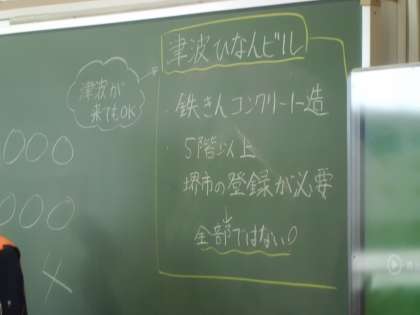 津波ひなんビル
津波が
来てもOK
・鉄きんコンクリート造
・5階以上
堺市の登録が必要
全部ではない!
○○○
○○○